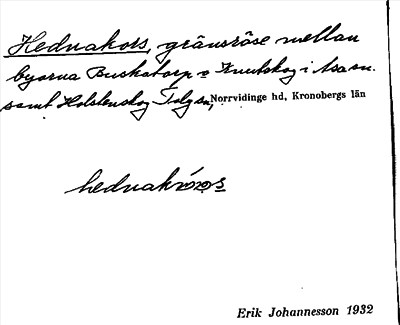 Hednakors, gränsröse mellan
byarna Buskatorp o Knutskog i Asa sn.
samt Holstenskog Tolg sn, Norrvidinge hd, Kronobergs län
hednakrors
Erik Johannesson 1932